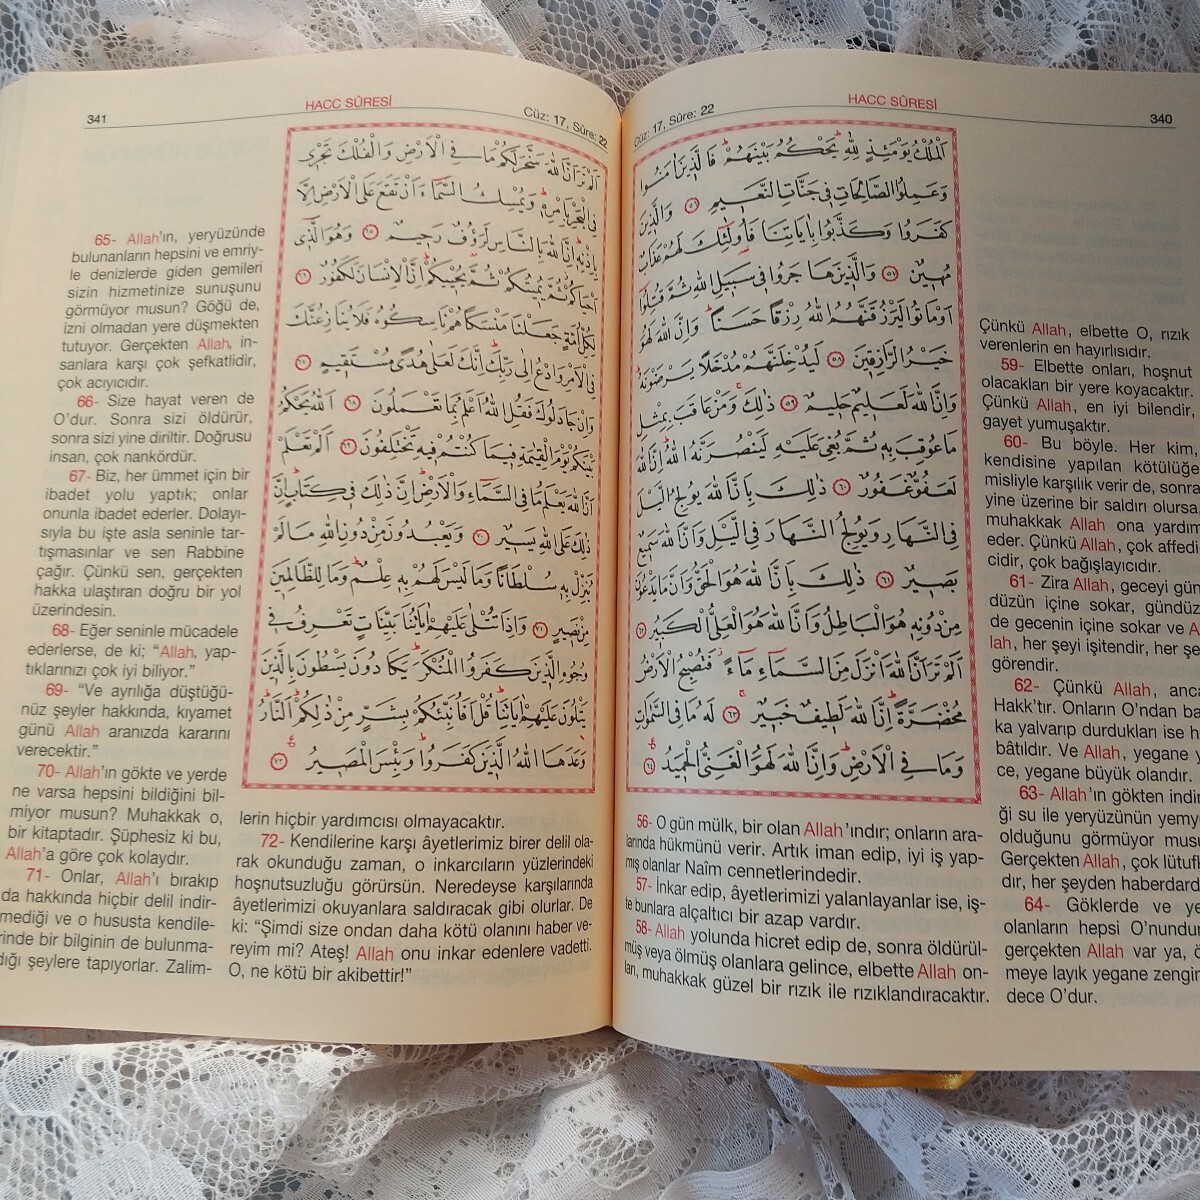 HACC SÛRESİ
340
Cüz: 17, Sûre: 22
اَلْمُلْكُ يَوْمَئِذٍ لِلّٰهِ يَحْكُمُ بَيْنَهُمْ فَالَّذ۪ينَ اٰمَنُوا
وَعَمِلُوا الصَّالِحَاتِ ف۪ي جَنَّاتِ النَّع۪يمِ ﴿٥٦﴾ وَالَّذ۪ينَ
كَفَرُوا وَكَذَّبُوا بِاٰيَاتِنَا فَاُو۬لٰٓئِكَ لَهُمْ عَذَابٌ
مُه۪ينٌ ﴿٥٧﴾ وَالَّذ۪ينَ هَاجَرُوا ف۪ي سَب۪يلِ اللّٰهِ ثُمَّ قُتِلُٓوا
اَوْ مَاتُوا لَيَرْزُقَنَّهُمُ اللّٰهُ رِزْقًا حَسَنًا وَاِنَّ اللّٰهَ لَهُوَ
خَيْرُ الرَّازِق۪ينَ ﴿٥٨﴾ لَيُدْخِلَنَّهُمْ مُدْخَلًا يَرْضَوْنَهُ
وَاِنَّ اللّٰهَ لَعَل۪يمٌ حَل۪يمٌ ﴿٥٩﴾ ذٰلِكَ وَمَنْ عَاقَبَ بِمِثْلِ
مَا عُوقِبَ بِه۪ ثُمَّ بُغِيَ عَلَيْهِ لَيَنْصُرَنَّهُ اللّٰهُ اِنَّ اللّٰهَ
لَعَفُوٌّ غَفُورٌ ﴿٦٠﴾ ذٰلِكَ بِاَنَّ اللّٰهَ يُولِجُ الَّيْلَ
فِي النَّهَارِ وَيُولِجُ النَّهَارَ فِي الَّيْلِ وَاَنَّ اللّٰهَ سَم۪يعٌ
بَص۪يرٌ ﴿٦١﴾ ذٰلِكَ بِاَنَّ اللّٰهَ هُوَ الْحَقُّ وَاَنَّ مَا يَدْعُونَ
مِنْ دُونِه۪ هُوَ الْبَاطِلُ وَاَنَّ اللّٰهَ هُوَ الْعَلِيُّ الْكَب۪يرُ ﴿٦٢﴾
اَلَمْ تَرَ اَنَّ اللّٰهَ اَنْزَلَ مِنَ السَّمَٓاءِ مَٓاءً فَتُصْبِحُ الْاَرْضُ
مُخْضَرَّةً اِنَّ اللّٰهَ لَط۪يفٌ خَب۪يرٌ ﴿٦٣﴾ لَهُ مَا فِي السَّمٰوَاتِ
وَمَا فِي الْاَرْضِ وَاِنَّ اللّٰهَ لَهُوَ الْغَنِيُّ الْحَم۪يدُ ﴿٦٤﴾
56- O gün mülk, bir olan Allah'ındır; onların ara-
larında hükmünü verir. Artık iman edip, iyi iş yap-
mış olanlar Naîm cennetlerindedir.
57- İnkar edip, âyetlerimizi yalanlayanlar ise, iş-
te bunlara alçaltıcı bir azap vardır.
58- Allah yolunda hicret edip de, sonra öldürül-
müş veya ölmüş olanlara gelince, elbette Allah on-
ları, muhakkak güzel bir rızık ile rızıklandıracaktır.
Çünkü Allah, elbette O, rızık
verenlerin en hayırlısıdır.
59- Elbette onları, hoşnut
olacakları bir yere koyacaktır.
Çünkü Allah, en iyi bilendir,
gayet yumuşaktır.
60- Bu böyle. Her kim,
kendisine yapılan kötülüğe
misliyle karşılık verir de, sonra
yine üzerine bir saldırı olursa,
muhakkak Allah ona yardım
eder. Çünkü Allah, çok affedi
cidir, çok bağışlayıcıdır.
61- Zira Allah, geceyi gün
düzün içine sokar, gündüz
de gecenin içine sokar ve A
lah, her şeyi işitendir, her şe
görendir.
62- Çünkü Allah, anca
Hakk'tır. Onların O'ndan ba
ka yalvarıp durdukları ise h
bâtıldır. Ve Allah, yegane y
ce, yegane büyük olandır.
63- Allah'ın gökten indir
ği su ile yeryüzünün yemy
olduğunu görmüyor musun
Gerçekten Allah, çok lütufk
dır, her şeyden haberdard
64- Göklerde ve ye
olanların hepsi O'nundur
gerçekten Allah var ya, ö
meye layık yegane zengin
dece O'dur.
341
HACC SÛRESİ
Cüz: 17, Sûre: 22
اَلَمْ تَرَ اَنَّ اللّٰهَ سَخَّرَ لَكُمْ مَا فِي الْاَرْضِ وَالْفُلْكَ تَجْر۪ي
فِي الْبَحْرِ بِاَمْرِه۪ وَيُمْسِكُ السَّمَٓاءَ اَنْ تَقَعَ عَلَى الْاَرْضِ اِلَّا
بِاِذْنِه۪ اِنَّ اللّٰهَ بِالنَّاسِ لَرَؤُ۫فٌ رَح۪يمٌ ﴿٦٥﴾ وَهُوَ الَّذ۪ٓي
اَحْيَاكُمْ ثُمَّ يُم۪يتُكُمْ ثُمَّ يُحْي۪يكُمْ اِنَّ الْاِنْسَانَ لَكَفُورٌ ﴿٦٦﴾
لِكُلِّ اُمَّةٍ جَعَلْنَا مَنْسَكًا هُمْ نَاسِكُوهُ فَلَا يُنَازِعُنَّكَ
فِي الْاَمْرِ وَادْعُ اِلٰى رَبِّكَ اِنَّكَ لَعَلٰى هُدًى مُسْتَق۪يمٍ ﴿٦٧﴾
وَاِنْ جَادَلُوكَ فَقُلِ اللّٰهُ اَعْلَمُ بِمَا تَعْمَلُونَ ﴿٦٨﴾ اَللّٰهُ يَحْكُمُ
بَيْنَكُمْ يَوْمَ الْقِيٰمَةِ ف۪يمَا كُنْتُمْ ف۪يهِ تَخْتَلِفُونَ ﴿٦٩﴾ اَلَمْ تَعْلَمْ
اَنَّ اللّٰهَ يَعْلَمُ مَا فِي السَّمَٓاءِ وَالْاَرْضِ اِنَّ ذٰلِكَ ف۪ي كِتَابٍ اِنَّ
ذٰلِكَ عَلَى اللّٰهِ يَس۪يرٌ ﴿٧٠﴾ وَيَعْبُدُونَ مِنْ دُونِ اللّٰهِ مَا لَمْ
يُنَزِّلْ بِه۪ سُلْطَانًا وَمَا لَيْسَ لَهُمْ بِه۪ عِلْمٌ وَمَا لِلظَّالِم۪ينَ
مِنْ نَص۪يرٍ ﴿٧١﴾ وَاِذَا تُتْلٰى عَلَيْهِمْ اٰيَاتُنَا بَيِّنَاتٍ تَعْرِفُ ف۪ي
وُجُوهِ الَّذ۪ينَ كَفَرُوا الْمُنْكَرَ يَكَادُونَ يَسْطُونَ بِالَّذ۪ينَ
يَتْلُونَ عَلَيْهِمْ اٰيَاتِنَا قُلْ اَفَاُنَبِّئُكُمْ بِشَرٍّ مِنْ ذٰلِكُمْ اَلنَّارُ
وَعَدَهَا اللّٰهُ الَّذ۪ينَ كَفَرُوا وَبِئْسَ الْمَص۪يرُ ﴿٧٢﴾
65- Allah'ın, yeryüzünde
bulunanların hepsini ve emriy-
le denizlerde giden gemileri
sizin hizmetinize sunuşunu
görmüyor musun? Göğü de,
izni olmadan yere düşmekten
tutuyor. Gerçekten Allah, in-
sanlara karşı çok şefkatlidir,
çok acıyıcıdır.
66- Size hayat veren de
O'dur. Sonra sizi öldürür,
sonra sizi yine diriltir. Doğrusu
insan, çok nankördür.
67- Biz, her ümmet için bir
ibadet yolu yaptık; onlar
onunla ibadet ederler. Dolayı-
sıyla bu işte asla seninle tar-
tışmasınlar ve sen Rabbine
çağır. Çünkü sen, gerçekten
hakka ulaştıran doğru bir yol
üzerindesin.
68- Eğer seninle mücadele
ederlerse, de ki; "Allah, yap-
tıklarınızı çok iyi biliyor."
69- "Ve ayrılığa düştüğü-
nüz şeyler hakkında, kıyamet
günü Allah aranızda kararını
verecektir."
70- Allah'ın gökte ve yerde
ne varsa hepsini bildiğini bil-
miyor musun? Muhakkak o,
bir kitaptadır. Şüphesiz ki bu,
Allah'a göre çok kolaydır.
71- Onlar, Allah'ı bırakıp
da hakkında hiçbir delil indir-
mediği ve o hususta kendile-
rinde bir bilginin de bulunma-
dığı şeylere tapıyorlar. Zalim-
lerin hiçbir yardımcısı olmayacaktır.
72- Kendilerine karşı âyetlerimiz birer delil ola-
rak okunduğu zaman, o inkarcıların yüzlerindeki
hoşnutsuzluğu görürsün. Neredeyse karşılarında
âyetlerimizi okuyanlara saldıracak gibi olurlar. De
ki: "Şimdi size ondan daha kötü olanını haber ve-
reyim mi? Ateş! Allah onu inkar edenlere vadetti.
O, ne kötü bir akibettir!"